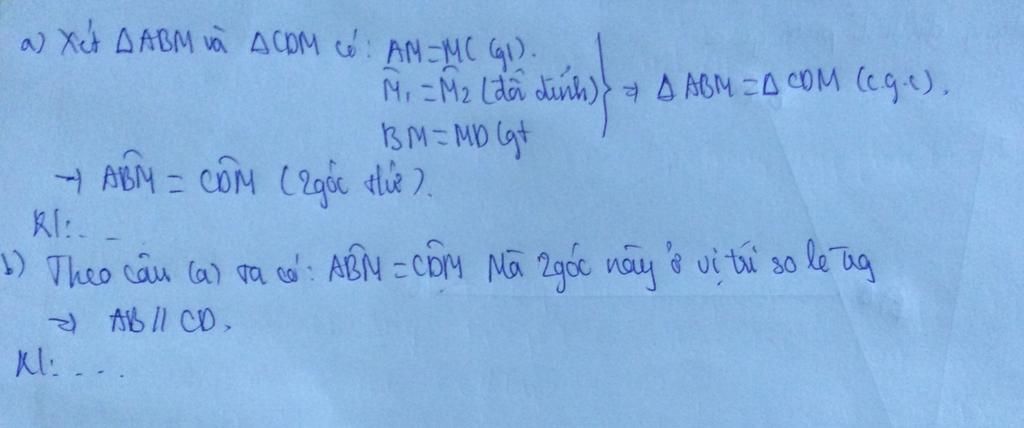 a) Xét ΔABM và ΔCDM có: AM=MC (gt).
M̂₁ = M̂₂ (đối đỉnh) } ⇒ ΔABM = ΔCDM (c.g.c).
BM=MD (gt
→ AB̂M = CD̂M (2góc t/ứ).
Kl:. _
b) Theo câu (a) ta có: AB̂M = CD̂M Mà 2góc này ở vị trí so le tg
⇒ AB // CD.
Kl: ....